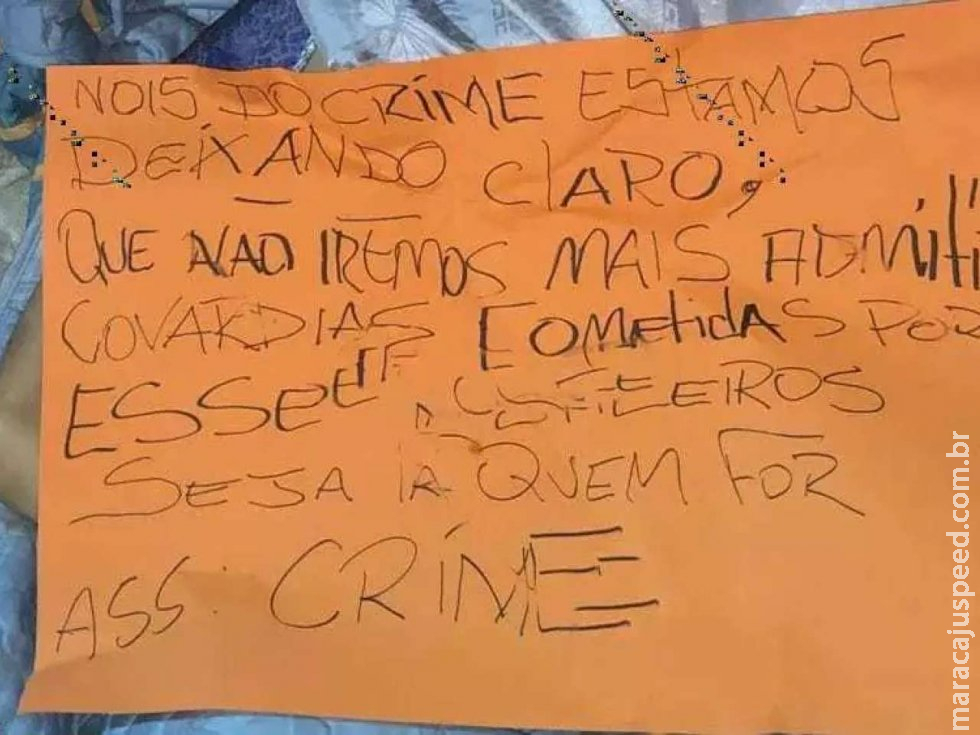 NOIS DO CRÍME ESTAMOS
DEIXANDO CLARO,
QUE NAO IREMOS MAIS ADMITI
COVARDIAS COMETIDAS POR
ESSE
SEJA lA QUEM FOR
ASS: CRIME
maracajuspeed.com.br